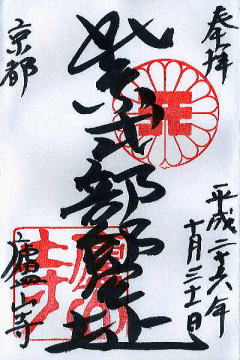 奉拝
平成二十六年
十月三十一日
紫式部邸宅址
京都
廬山寺